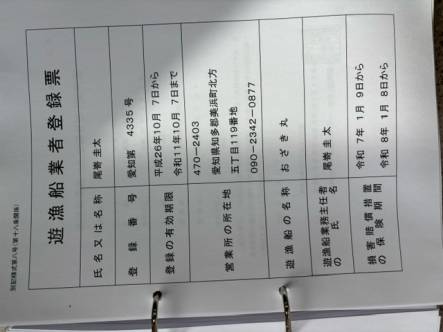 別記様式第八号(第十八条関係)
遊漁船業者登録票
氏名又は名称 尾嵜 圭太
登録番号 愛知第 4335 号
登録の有効期限 平成26年10月 7日から
令和11年10月 7日まで
営業所の所在地 470-2403
愛知県知多郡美浜町北方
五丁目119番地
090-2342-0877
遊漁船の名称 おざき丸
遊漁船業務主任者の氏名 尾嵜 圭太
損害賠償措置の保険期間 令和 7年 1月 9日から
令和 8年 1月 8日から